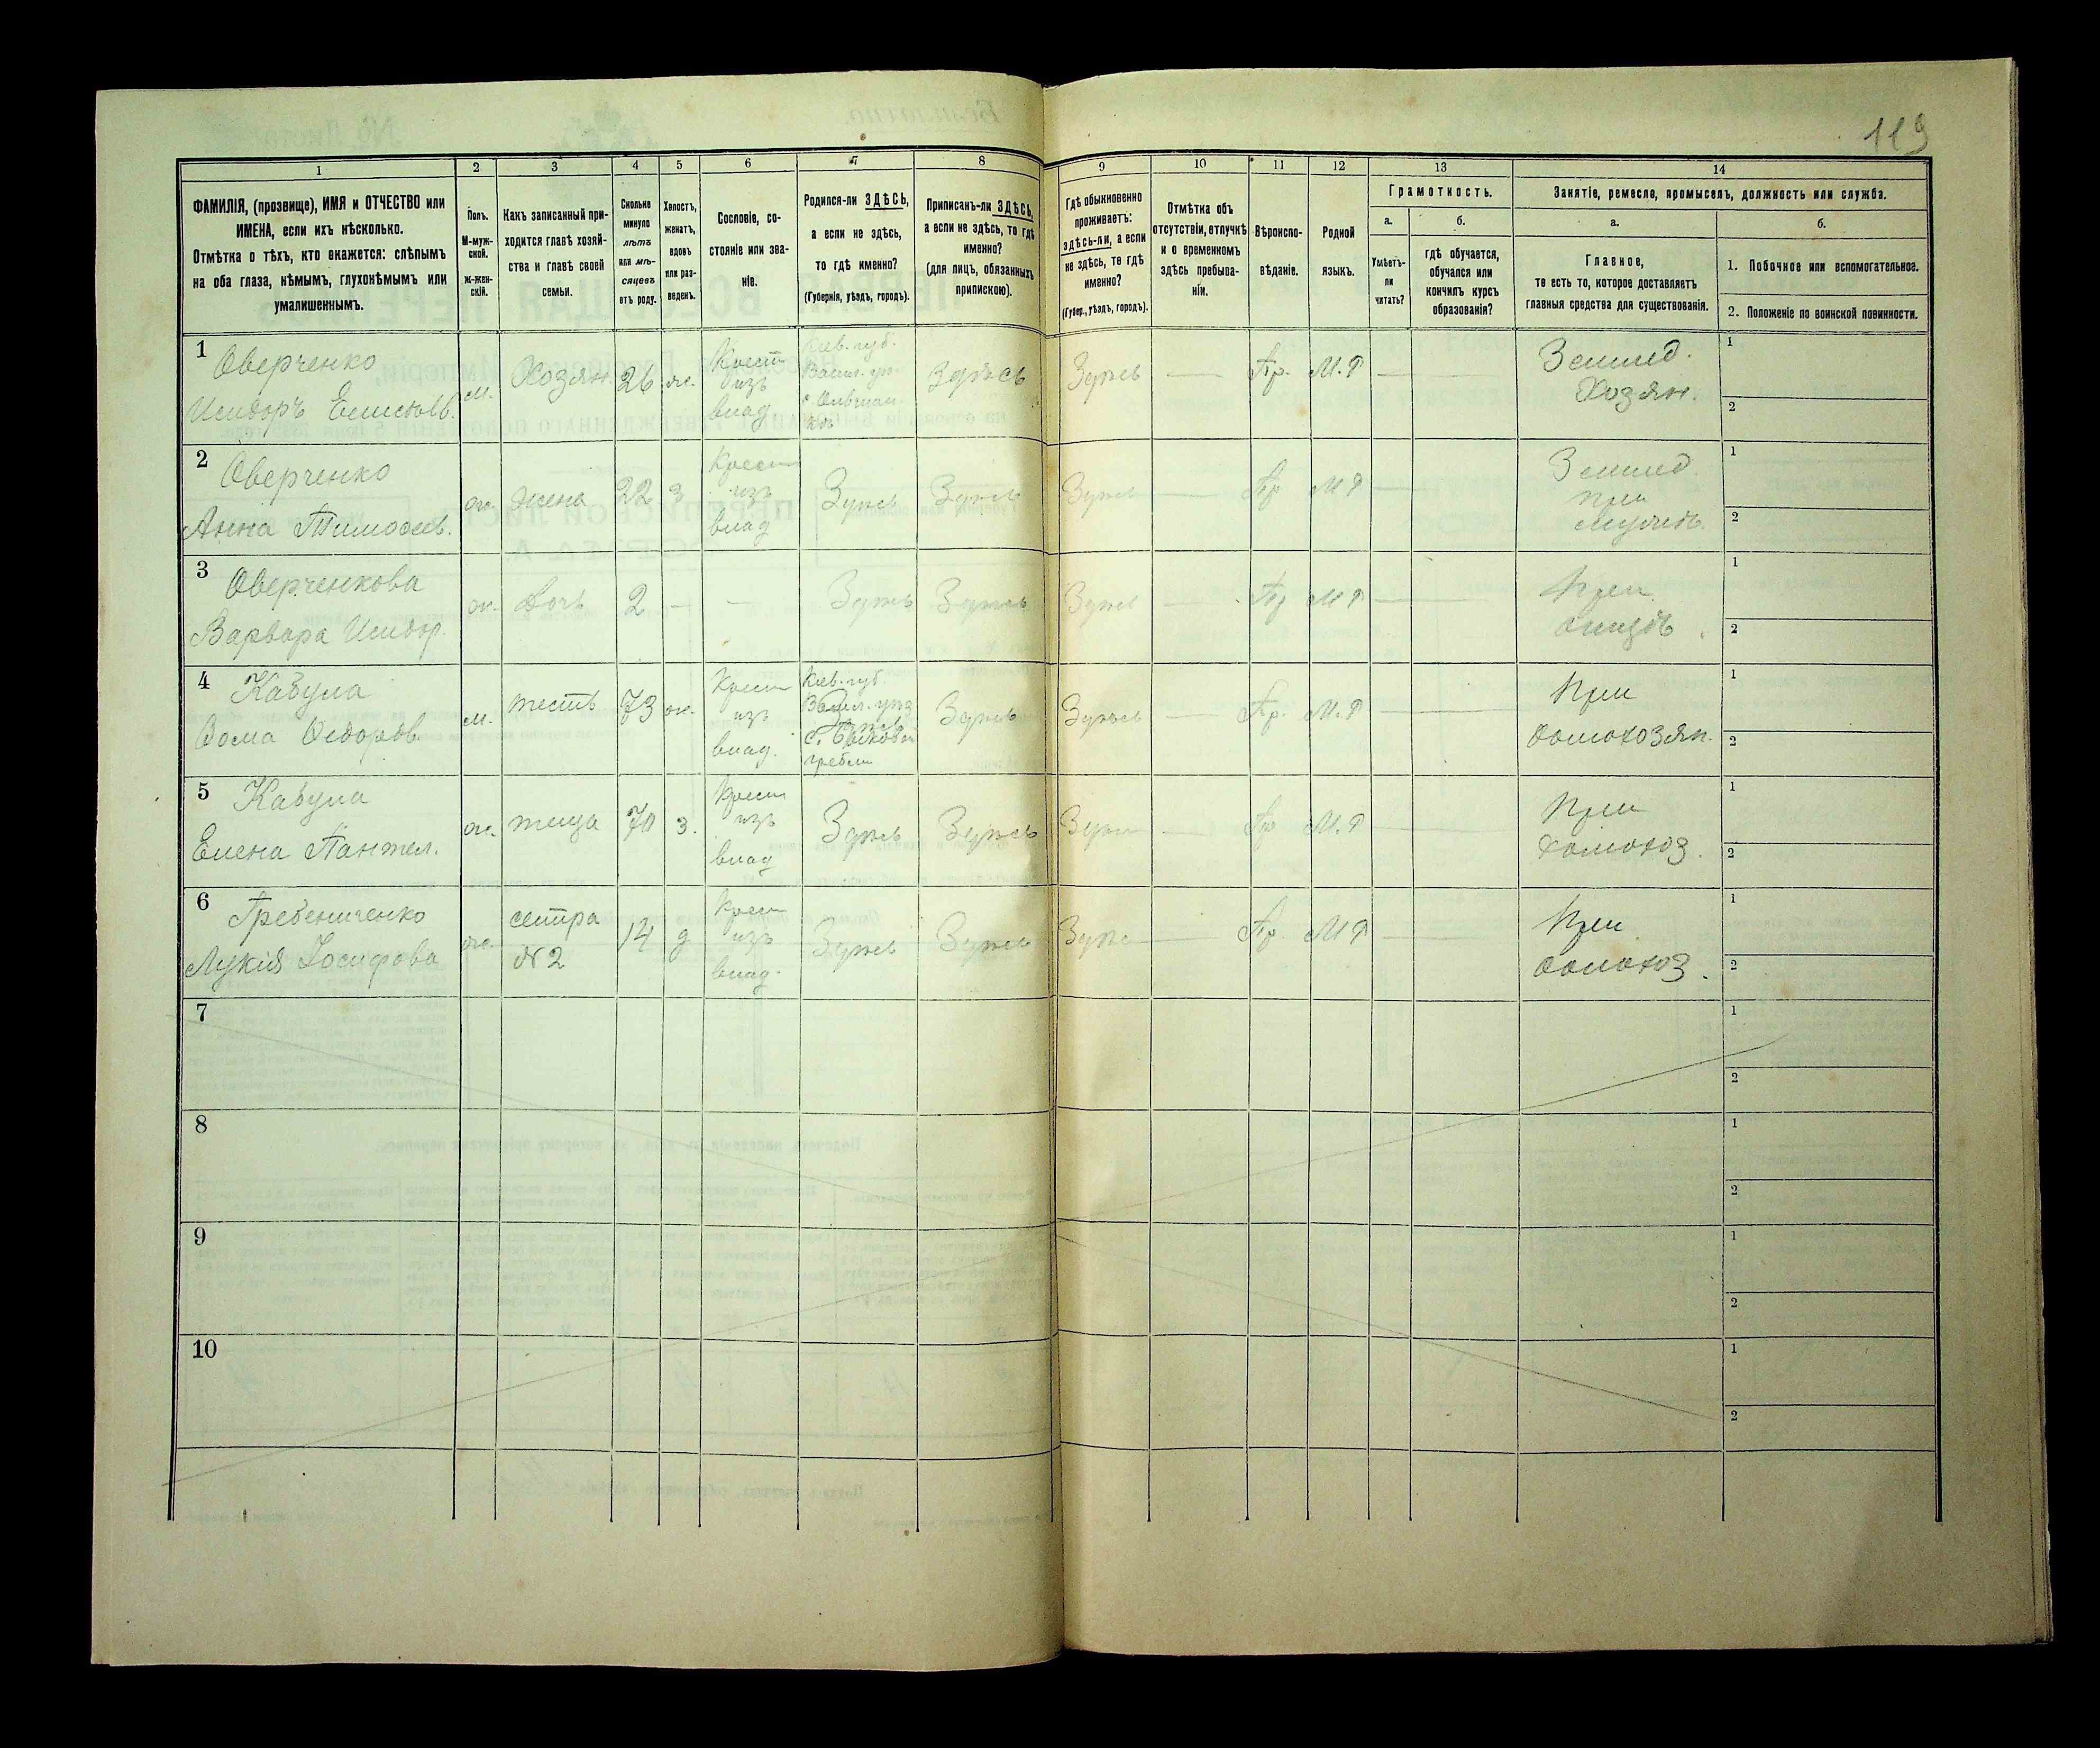 119
1
2
3
4
5
6
7
8
9
10
11
12
13
14
ФАМИЛІЯ, (прозвище), ИМЯ и ОТЧЕСТВО или
ИМЕНА, если ихъ нѣсколько.
Отмѣтка о тѣхъ, кто окажется: слѣпымъ
на оба глаза, нѣмымъ, глухонѣмымъ или
умалишеннымъ.
Полъ.
М-муж-
ской.
ж-жен-
скій.
Какъ записанный при-
ходится главѣ хозяй-
ства и главѣ своей
семьи.
Сколько
минуло
лѣтъ
или мѣ-
сяцевъ
отъ роду.
Холостъ,
женатъ,
вдовъ
или раз-
веденъ.
Сословіе, со-
стояніе или зва-
ніе.
Родился-ли ЗДѢСЬ,
а если не здѣсь,
то гдѣ именно?
(Губернія, уѣздъ, городъ).
Приписанъ-ли ЗДѢСЬ,
а если не здѣсь, то гдѣ
именно?
(для лицъ, обязанныхъ
припискою).
Гдѣ обыкновенно
проживаетъ:
здѣсь-ли, а если
не здѣсь, то гдѣ
именно?
(Губер., уѣздъ, городъ).
Отмѣтка объ
отсутствіи, отлучкѣ
и о временномъ
здѣсь пребыва-
ніи.
Вѣроиспо-
вѣданіе.
Родной
языкъ.
Грамотность.
а.
б.
Умѣетъ-
ли
читать?
гдѣ обучается,
обучался или
кончилъ курсъ
образованія?
Занятіе, ремесло, промыселъ, должность или служба.
а.
б.
Главное,
то есть то, которое доставляетъ
главныя средства для существованія.
1. Побочное или вспомогательное.
2. Положеніе по воинской повинности.
1
Оверченко
Исидоръ
м.
Хозяин
26
ж.
Крест
изъ
влад
Кіев. губ.
Васил. уѣз.
Здѣсь
Здѣсь
Пр.
М.Р
Землед.
Хозяин.
1
2
2
Оверченко
Анна Тимоѳеев.
ж.
жена
22
з
Крест
изъ
влад
Здѣсь
Здѣсь
Здѣсь
Пр
М Р
Землед.
при
мужѣ.
1
2
3
Оверченкова
Варвара Исидор.
ж.
дочь
2
Здѣсь
Здѣсь
Здѣсь
Пр
М Р
При
отцѣ
1
2
4
Кабула
Ѳома Ѳедоров.
м.
тесть
73
ж.
Крест
изъ
влад.
Кіев. губ.
Васил. уѣз
гребли
Здѣсь
Здѣсь
Пр.
М.Р
При
домохозяи.
1
2
5
Кабула
Елена Пантел.
ж.
теща
70
з.
Крест
изъ
влад
Здѣсь
Здѣсь
Здѣсь
Пр
М.Р
При
домохоз.
1
2
6
Гребениченко
Лукія Іосифова
ж.
сестра
№2
14
д
Крест
изъ
влад.
Здѣсь
Здѣсь
Здѣсь
Пр.
М Р
При
домохоз.
1
2
7
1
2
8
1
2
9
1
2
10
1
2